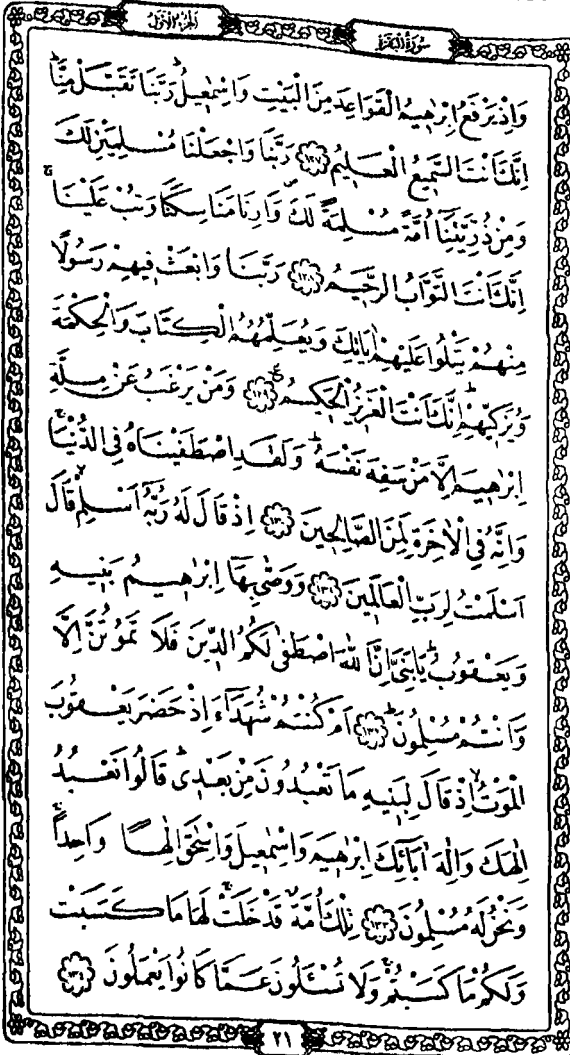 سُورَةُ الْبَقَرَةِ
اَلْجُزْءُ الْاَوَّلُ
وَاِذْ يَرْفَعُ اِبْرٰه۪يمُ الْقَوَاعِدَ مِنَ الْبَيْتِ وَاِسْمٰع۪يلُۜ رَبَّنَا تَقَبَّلْ مِنَّاۜ
اِنَّكَ اَنْتَ السَّم۪يعُ الْعَل۪يمُ ﴿١٢٧﴾ رَبَّنَا وَاجْعَلْنَا مُسْلِمَيْنِ لَكَ
وَمِنْ ذُرِّيَّتِنَٓا اُمَّةً مُسْلِمَةً لَكَۖ وَاَرِنَا مَنَاسِكَنَا وَتُبْ عَلَيْنَاۚ
اِنَّكَ اَنْتَ التَّوَّابُ الرَّح۪يمُ ﴿١٢٨﴾ رَبَّنَا وَابْعَثْ ف۪يهِمْ رَسُولًا
مِنْهُمْ يَتْلُوا عَلَيْهِمْ اٰيَاتِكَ وَيُعَلِّمُهُمُ الْكِتَابَ وَالْحِكْمَةَ
وَيُزَكّ۪يهِمْۜ اِنَّكَ اَنْتَ الْعَز۪يزُ الْحَك۪يمُ۟ ﴿١٢٩﴾ وَمَنْ يَرْغَبُ عَنْ مِلَّةِ
اِبْرٰه۪يمَ اِلَّا مَنْ سَفِهَ نَفْسَهُۜ وَلَقَدِ اصْطَفَيْنَاهُ فِي الدُّنْيَاۚ
وَاِنَّهُ فِي الْاٰخِرَةِ لَمِنَ الصَّالِح۪ينَ ﴿١٣٠﴾ اِذْ قَالَ لَهُ رَبُّهُٓ اَسْلِمْۙ قَالَ
اَسْلَمْتُ لِرَبِّ الْعَالَم۪ينَ ﴿١٣١﴾ وَوَصّٰى بِهَٓا اِبْرٰه۪يمُ بَن۪يهِ
وَيَعْقُوبُۜ يَا بَنِيَّ اِنَّ اللّٰهَ اصْطَفٰى لَكُمُ الدّ۪ينَ فَلَا تَمُوتُنَّ اِلَّا
وَاَنْتُمْ مُسْلِمُونَۜ ﴿١٣٢﴾ اَمْ كُنْتُمْ شُهَدَٓاءَ اِذْ حَضَرَ يَعْقُوبَ
الْمَوْتُۙ اِذْ قَالَ لِبَن۪يهِ مَا تَعْبُدُونَ مِنْ بَعْد۪يۜ قَالُوا نَعْبُدُ
اِلٰهَكَ وَاِلٰهَ اٰبَٓائِكَ اِبْرٰه۪يمَ وَاِسْمٰع۪يلَ وَاِسْحٰقَ اِلٰهًا وَاحِدًاۚ
وَنَحْنُ لَهُ مُسْلِمُونَ ﴿١٣٣﴾ تِلْكَ اُمَّةٌ قَدْ خَلَتْۚ لَهَا مَا كَسَبَتْ
وَلَكُمْ مَا كَسَبْتُمْۚ وَلَا تُسْـَٔلُونَ عَمَّا كَانُوا يَعْمَلُونَ ﴿١٣٤﴾
٢١